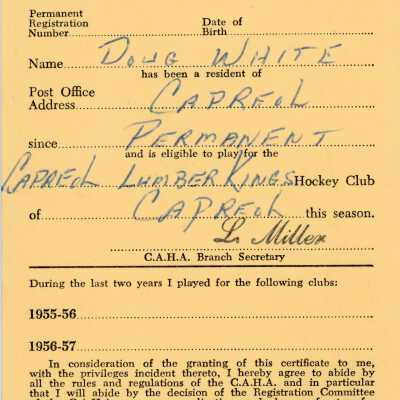 Permanent
Registration Date of
Number Birth
Name DOUG WHITE
has been a resident of
Post Office
Address CAPREOL
since PERMANENT
and is eligible to play for the
CAPREOL LUMBER KINGS Hockey Club
of CAPREOL this season.
L. Miller
C.A.H.A. Branch Secretary
During the last two years I played for the following clubs:
1955-56
1956-57
In consideration of the granting of this certificate to me,
with the privileges incident thereto, I hereby agree to abide by
all the rules and regulations of the C.A.H.A. and in particular
that I will abide by the decision of the Registration Committee